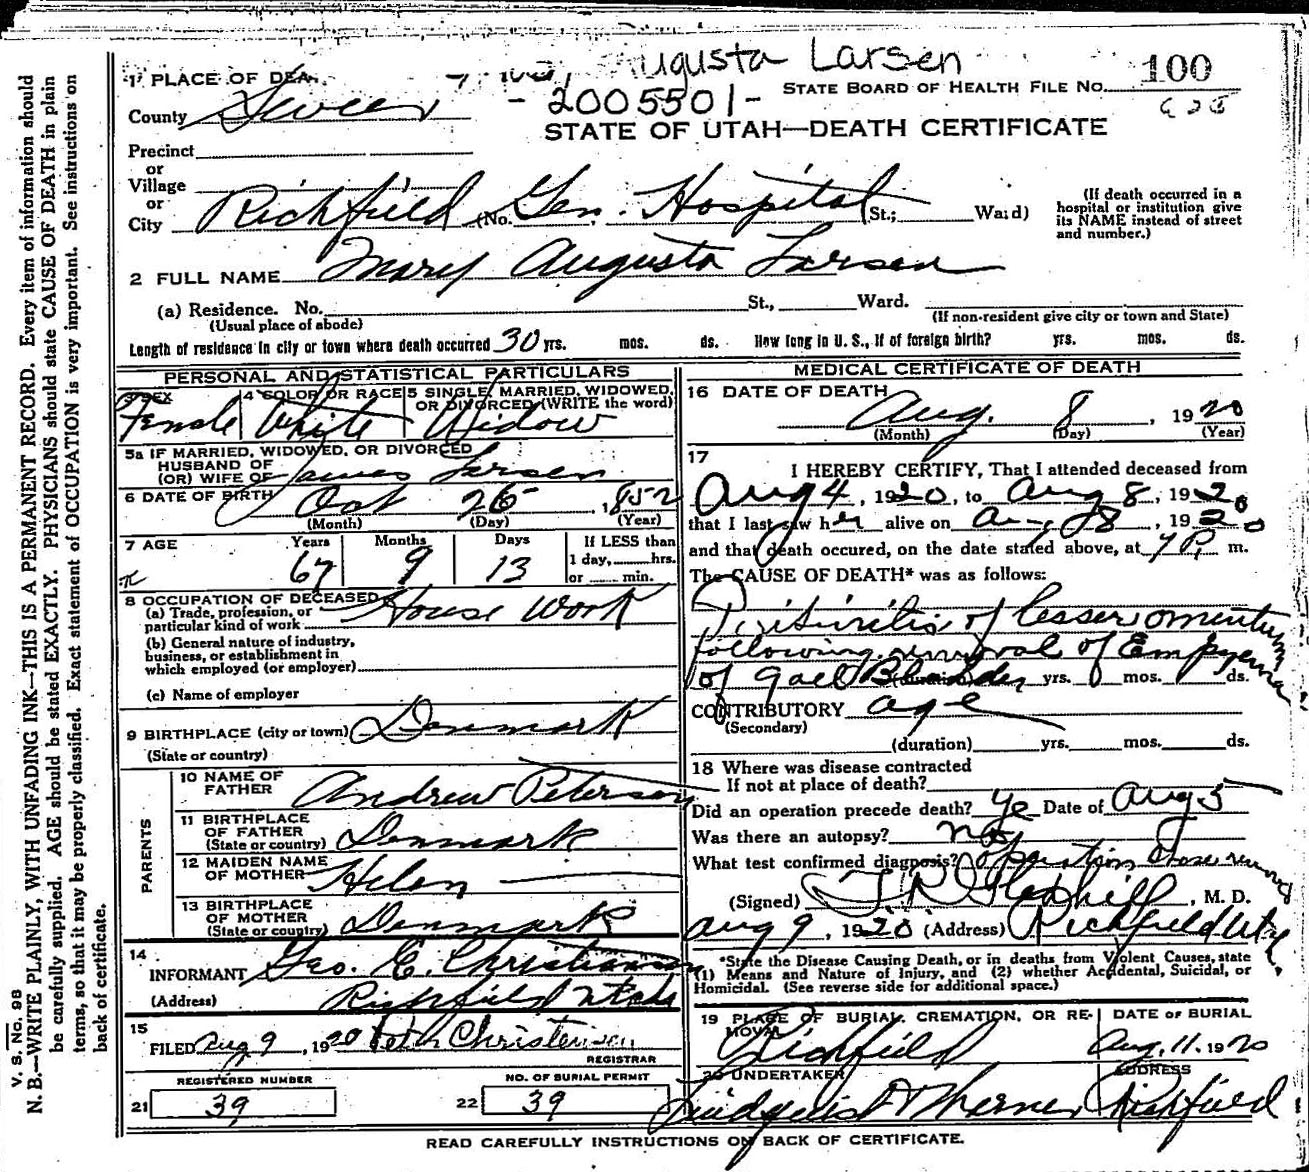 ugusta Larsen
1 PLACE OF DEA
-2005501-
STATE BOARD OF HEALTH FILE No. 100
County Sevier
STATE OF UTAH—DEATH CERTIFICATE
Precinct
or
Village
or
City Richfield (No. Gen. Hospital St.; Ward)
(If death occurred in a
hospital or institution give
its NAME instead of street
and number.)
2 FULL NAME Mary Augusta Larsen
(a) Residence. No. St., Ward.
(Usual place of abode)
(If non-resident give city or town and State)
Length of residence in city or town where death occurred 30 yrs. mos. ds. How long in U. S., if of foreign birth? yrs. mos. ds.
PERSONAL AND STATISTICAL PARTICULARS
3 SEX 4 COLOR OR RACE 5 SINGLE, MARRIED, WIDOWED,
OR DIVORCED (WRITE the word)
Female White Widow
5a IF MARRIED, WIDOWED, OR DIVORCED
HUSBAND OF
(OR) WIFE OF James Larsen
6 DATE OF BIRTH Oct 26, 1852
(Month) (Day) (Year)
7 AGE Years Months Days If LESS than
1 day, hrs.
or min.
67 9 13
8 OCCUPATION OF DECEASED
(a) Trade, profession, or
particular kind of work House Work
(b) General nature of industry,
business, or establishment in
which employed (or employer)
(c) Name of employer
9 BIRTHPLACE (city or town) Denmark
(State or country)
PARENTS
10 NAME OF
FATHER Andrew Peterson
11 BIRTHPLACE
OF FATHER
(State or country) Denmark
12 MAIDEN NAME
OF MOTHER Helen
13 BIRTHPLACE
OF MOTHER
(State or country) Denmark
14
INFORMANT Geo. E. Christiansen
(Address) Richfield Utah
15
FILED Aug 9, 1920 Christensen
REGISTRAR
REGISTERED NUMBER NO. OF BURIAL PERMIT
21 39 22 39
MEDICAL CERTIFICATE OF DEATH
16 DATE OF DEATH
Aug. 8, 1920
(Month) (Day) (Year)
17
I HEREBY CERTIFY, That I attended deceased from
Aug 4, 1920, to Aug 8, 1920
that I last saw her alive on Aug 8, 1920
and that death occured, on the date stated above, at 7 P. m.
The CAUSE OF DEATH* was as follows:
Piritinitis of lesser omentum
following removal of Empyema
of gall Bladder (duration) yrs. mos. ds.
CONTRIBUTORY age
(Secondary)
(duration) yrs. mos. ds.
18 Where was disease contracted
If not at place of death?
Did an operation precede death? ye Date of Aug 5
Was there an autopsy? no
What test confirmed diagnosis? Operation
(Signed) , M. D.
Aug 9, 1920 (Address) Richfield Utah
*State the Disease Causing Death, or in deaths from Violent Causes, state
(1) Means and Nature of Injury, and (2) whether Accidental, Suicidal, or
Homicidal. (See reverse side for additional space.)
19 PLACE OF BURIAL, CREMATION, OR RE-
MOVAL
DATE OF BURIAL
Richfield Aug. 11. 1920
20 UNDERTAKER ADDRESS
Richfield
READ CAREFULLY INSTRUCTIONS ON BACK OF CERTIFICATE.
V. S. No. 98
N. B.—WRITE PLAINLY, WITH UNFADING INK—THIS IS A PERMANENT RECORD. Every item of information should
be carefully supplied. AGE should be stated EXACTLY. PHYSICIANS should state CAUSE OF DEATH in plain
terms, so that it may be properly classified. Exact statement of OCCUPATION is very important. See instructions on
back of certificate.